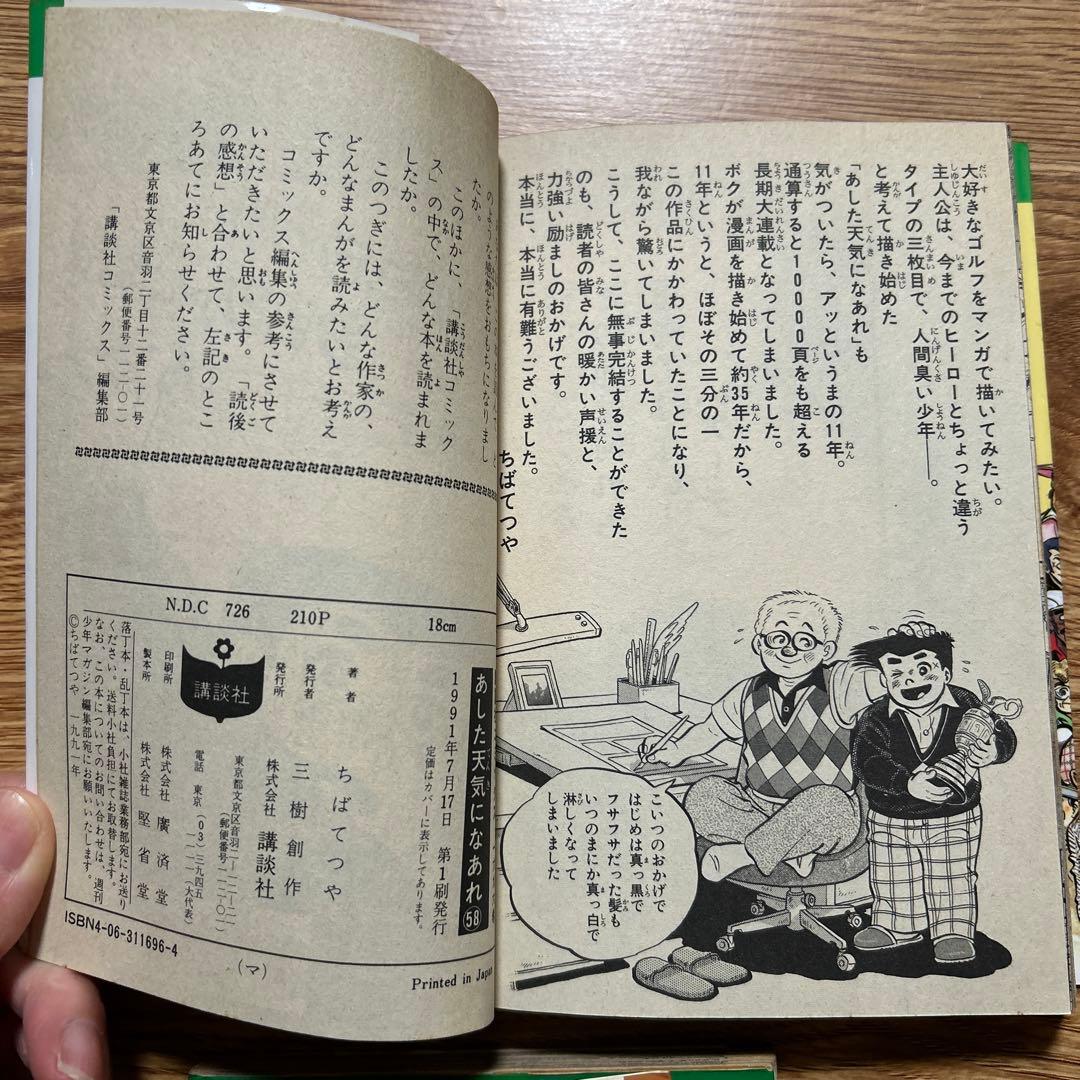 大好きなゴルフをマンガで描いてみたい。
主人公は、今までのヒーローとちょっと違う
タイプの三枚目で、人間臭い少年――。
と考えて描き始めた
「あした天気になあれ」も
気がついたら、アッというまの11年。
通算すると10000頁をも超える
長期大連載となってしまいました。
ボクが漫画を描き始めて約35年だから、
11年というと、ほぼその三分の一
この作品にかかわっていたことになり、
我ながら驚いてしまいました。
こうして、ここに無事完結することができた
のも、読者の皆さんの暖かい声援と、
力強い励ましのおかげです。
本当に、本当に有難うございました。
ちばてつや
こいつのおかげで
はじめは真っ黒で
フサフサだった髪も
いつのまにか真っ白で
淋しくなって
しまいました
のような感想をおもちになりまし
たか。
このほかに、「講談社コミック
ス」の中で、どんな本を読まれま
したか。
このつぎには、どんな作家の、
どんなまんがを読みたいとお考え
ですか。
コミックス編集の参考にさせて
いただきたいと思います。「読後
の感想」と合わせて、左記のとこ
ろあてにお知らせください。
東京都文京区音羽二丁目十二番二十一号
(郵便番号一一二〇一)
「講談社コミックス」編集部
N.D.C 726 210P 18cm
あした天気になあれ 58
1991年7月17日 第1刷発行
定価はカバーに表示してあります。
著者 ちばてつや
発行者 三樹創作
発行所 株式会社 講談社
東京都文京区音羽二-一二-二一
(郵便番号一一二-〇一)
電話 東京(03)三九四五
一一一一(大代表)
講談社
印刷所 株式会社 廣済堂
製本所 株式会社 堅省堂
落丁本・乱丁本は、小社雑誌業務部宛にお送り
ください。送料小社負担にてお取替します。
なお、この本についてのお問い合わせは、週刊
少年マガジン編集部宛にお願いいたします。
©ちばてつや 一九九一年
ISBN4-06-311696-4
(マ)
Printed in Japan